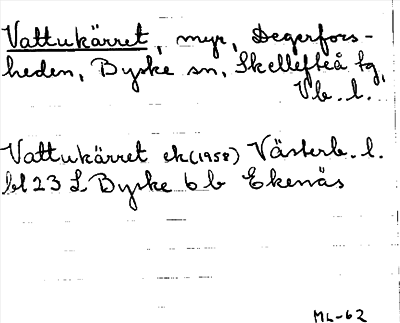 Vattukärret, myr, Degerfors-
heden, Byske sn, Skellefteå tg,
Vb. l.
Vattukärret ek (1958) Västerb. l.
bl 23 L Byske 6 b Ekenäs
ML-62